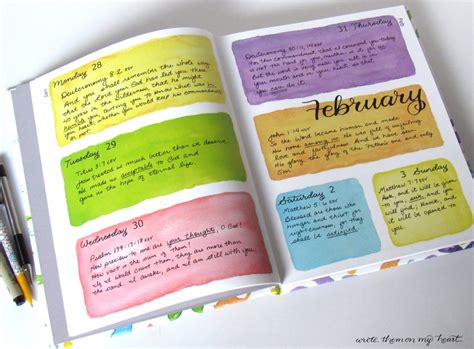 Monday 28
Deuteronomy 8:2
And you shall remember the whole way
that the Lord your God has led you these
years in the wilderness, that he might
you, testing you to know what was in
heart, whether you would keep his
or not.
Tuesday 29
Titus 3:7 CEV
Jesus treated us much better than we deserve
He made us acceptable to God and
gave us the hope of eternal life.
Wednesday 30
Psalm 139:17-18
How precious to me are your thoughts, O God!
How vast is the sum of them!
If I would count them, they are more than
the sand. I awake, and I am still with you.
31 Thursday
Deuteronomy 30:11,14
For this commandment that I command you today
is not too hard for you, neither is it far off
But the word is very near you. It is in your
mouth and in your heart, so that
you can do it.
February
John 1:14
So the Word became human and made
his home among us. He was full of unfailing
love and faithfulness. And we have seen
his glory, the glory of the Father's one and only
Son.
Saturday 2
Matthew 5:6
Blessed are those who
hunger and thirst for
righteousness, for they
shall be satisfied.
3 Sunday
Matthew 7:7
Ask, and it will be given
to you; seek, and you
will find; knock, and
it will be opened to
you.
wrote them on my heart